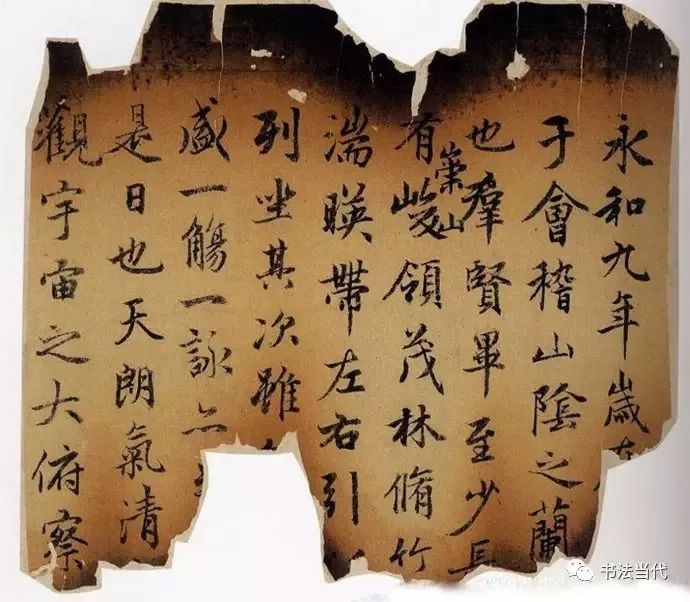 永和九年歲在
于會稽山陰之蘭
也羣賢畢至少長
有崇山峻領茂林脩竹
湍暎帶左右引
列坐其次雖
盛一觴一詠亦
是日也天朗氣清
觀宇宙之大俯察
书法当代